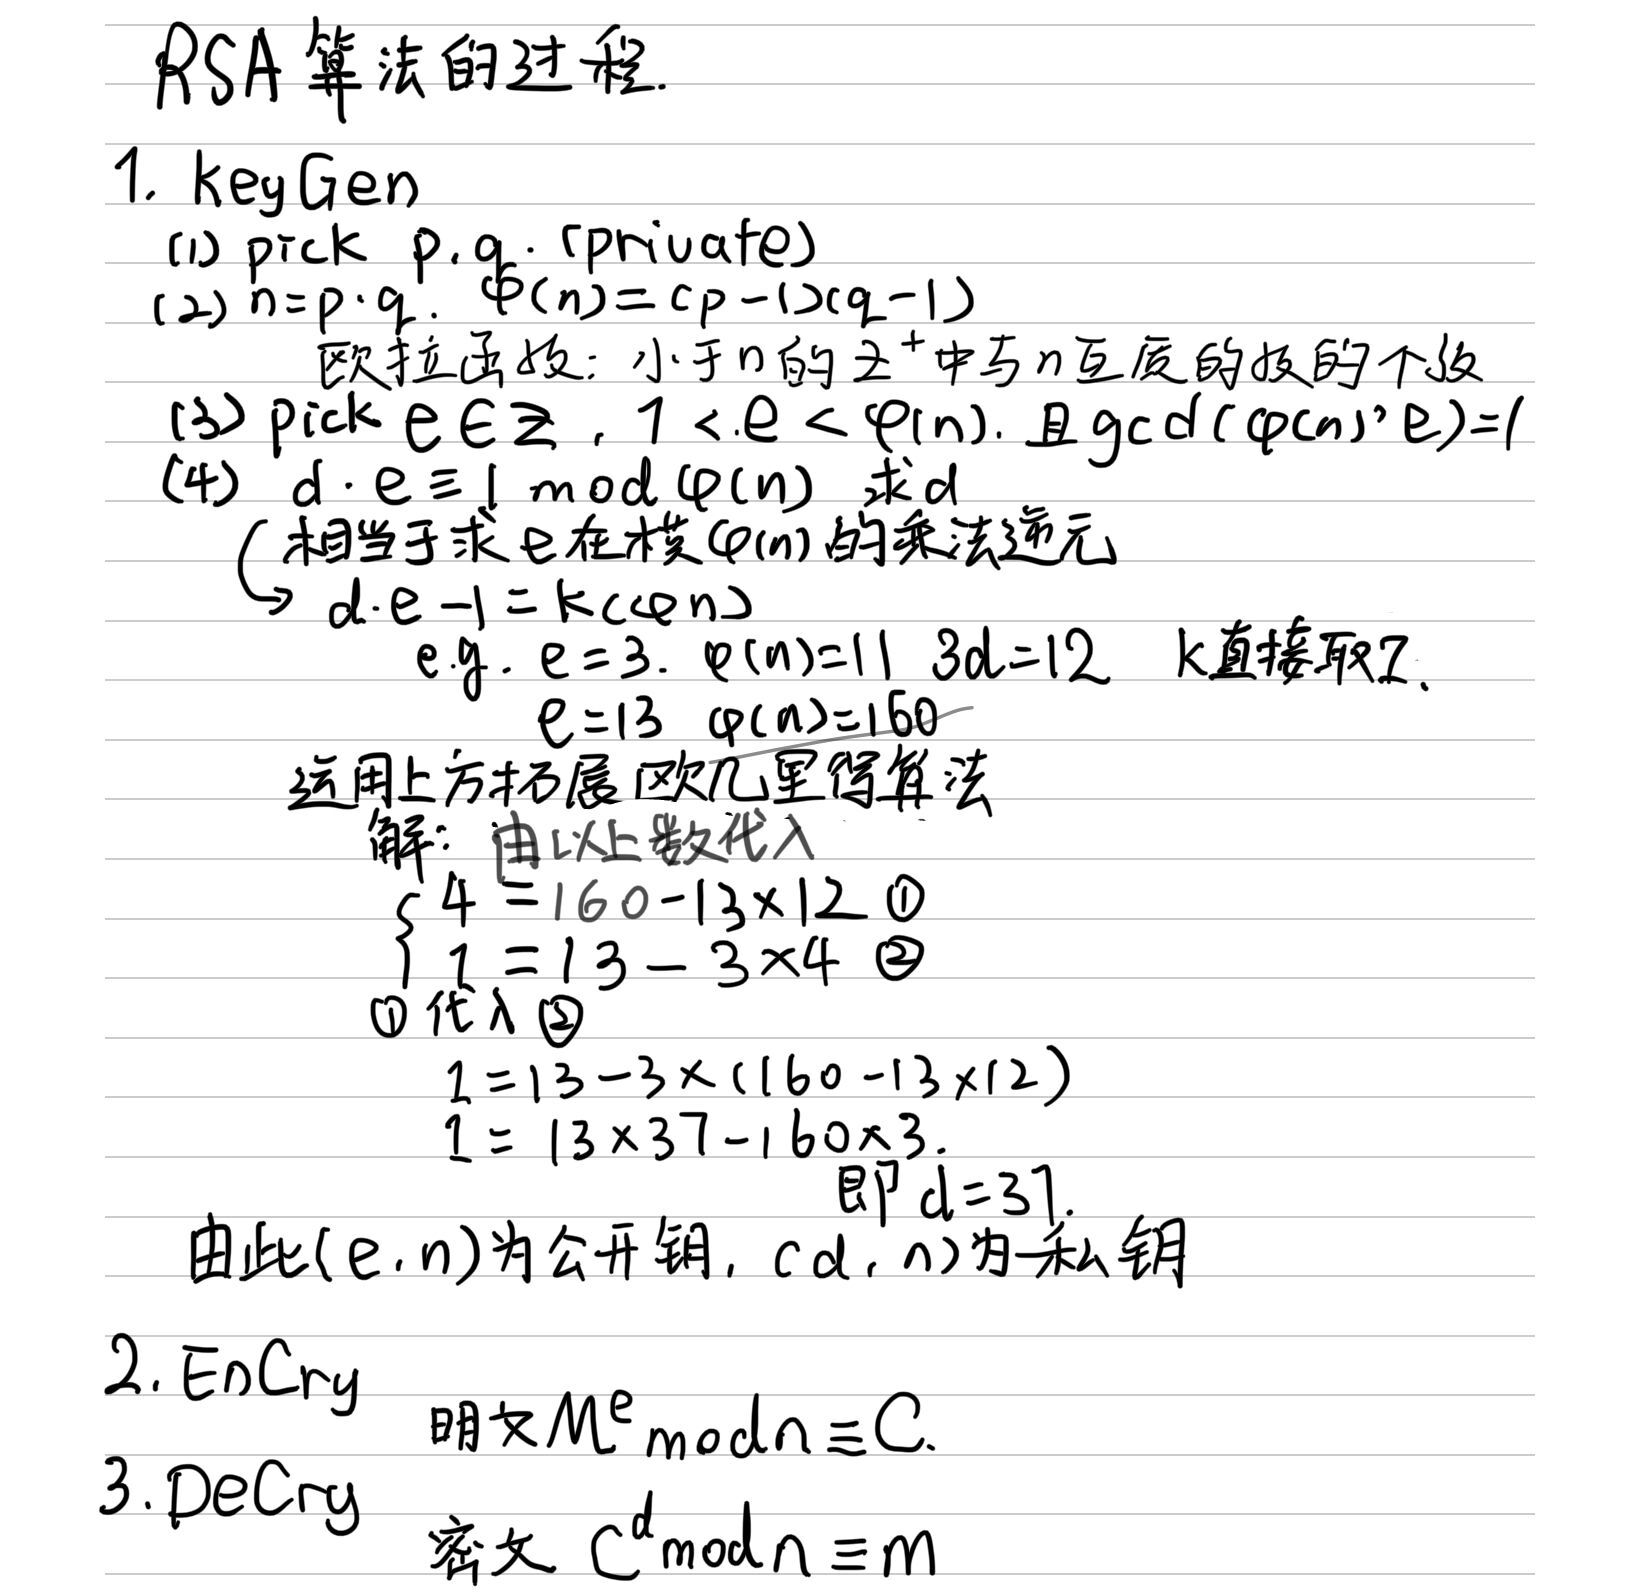 RSA算法的过程.
1. keyGen
(1) pick p.q. (private)
(2) n=p·q. φ(n)=(p-1)(q-1)
欧拉函数: 小于n的Z⁺中与n互质的数的个数
(3) pick e∈Z, 1<e<φ(n). 且gcd(φ(n), e)=1
(4) d·e≡1 mod φ(n) 求d
相当于求e在模φ(n)的乘法逆元
d·e-1=k(φn)
e.g. e=3. φ(n)=11 3d=12 k直接取1.
e=13 φ(n)=160
运用上方拓展欧几里得算法
解: 由以上数代入
4=160-13×12 ①
1=13-3×4 ②
①代入②
1=13-3×(160-13×12)
1=13×37-160×3.
即d=37.
由此(e,n)为公开钥, (d,n)为私钥
2. EnCry
明文Mᵉ mod n≡C.
3. DeCry
密文 Cᵈ mod n≡m